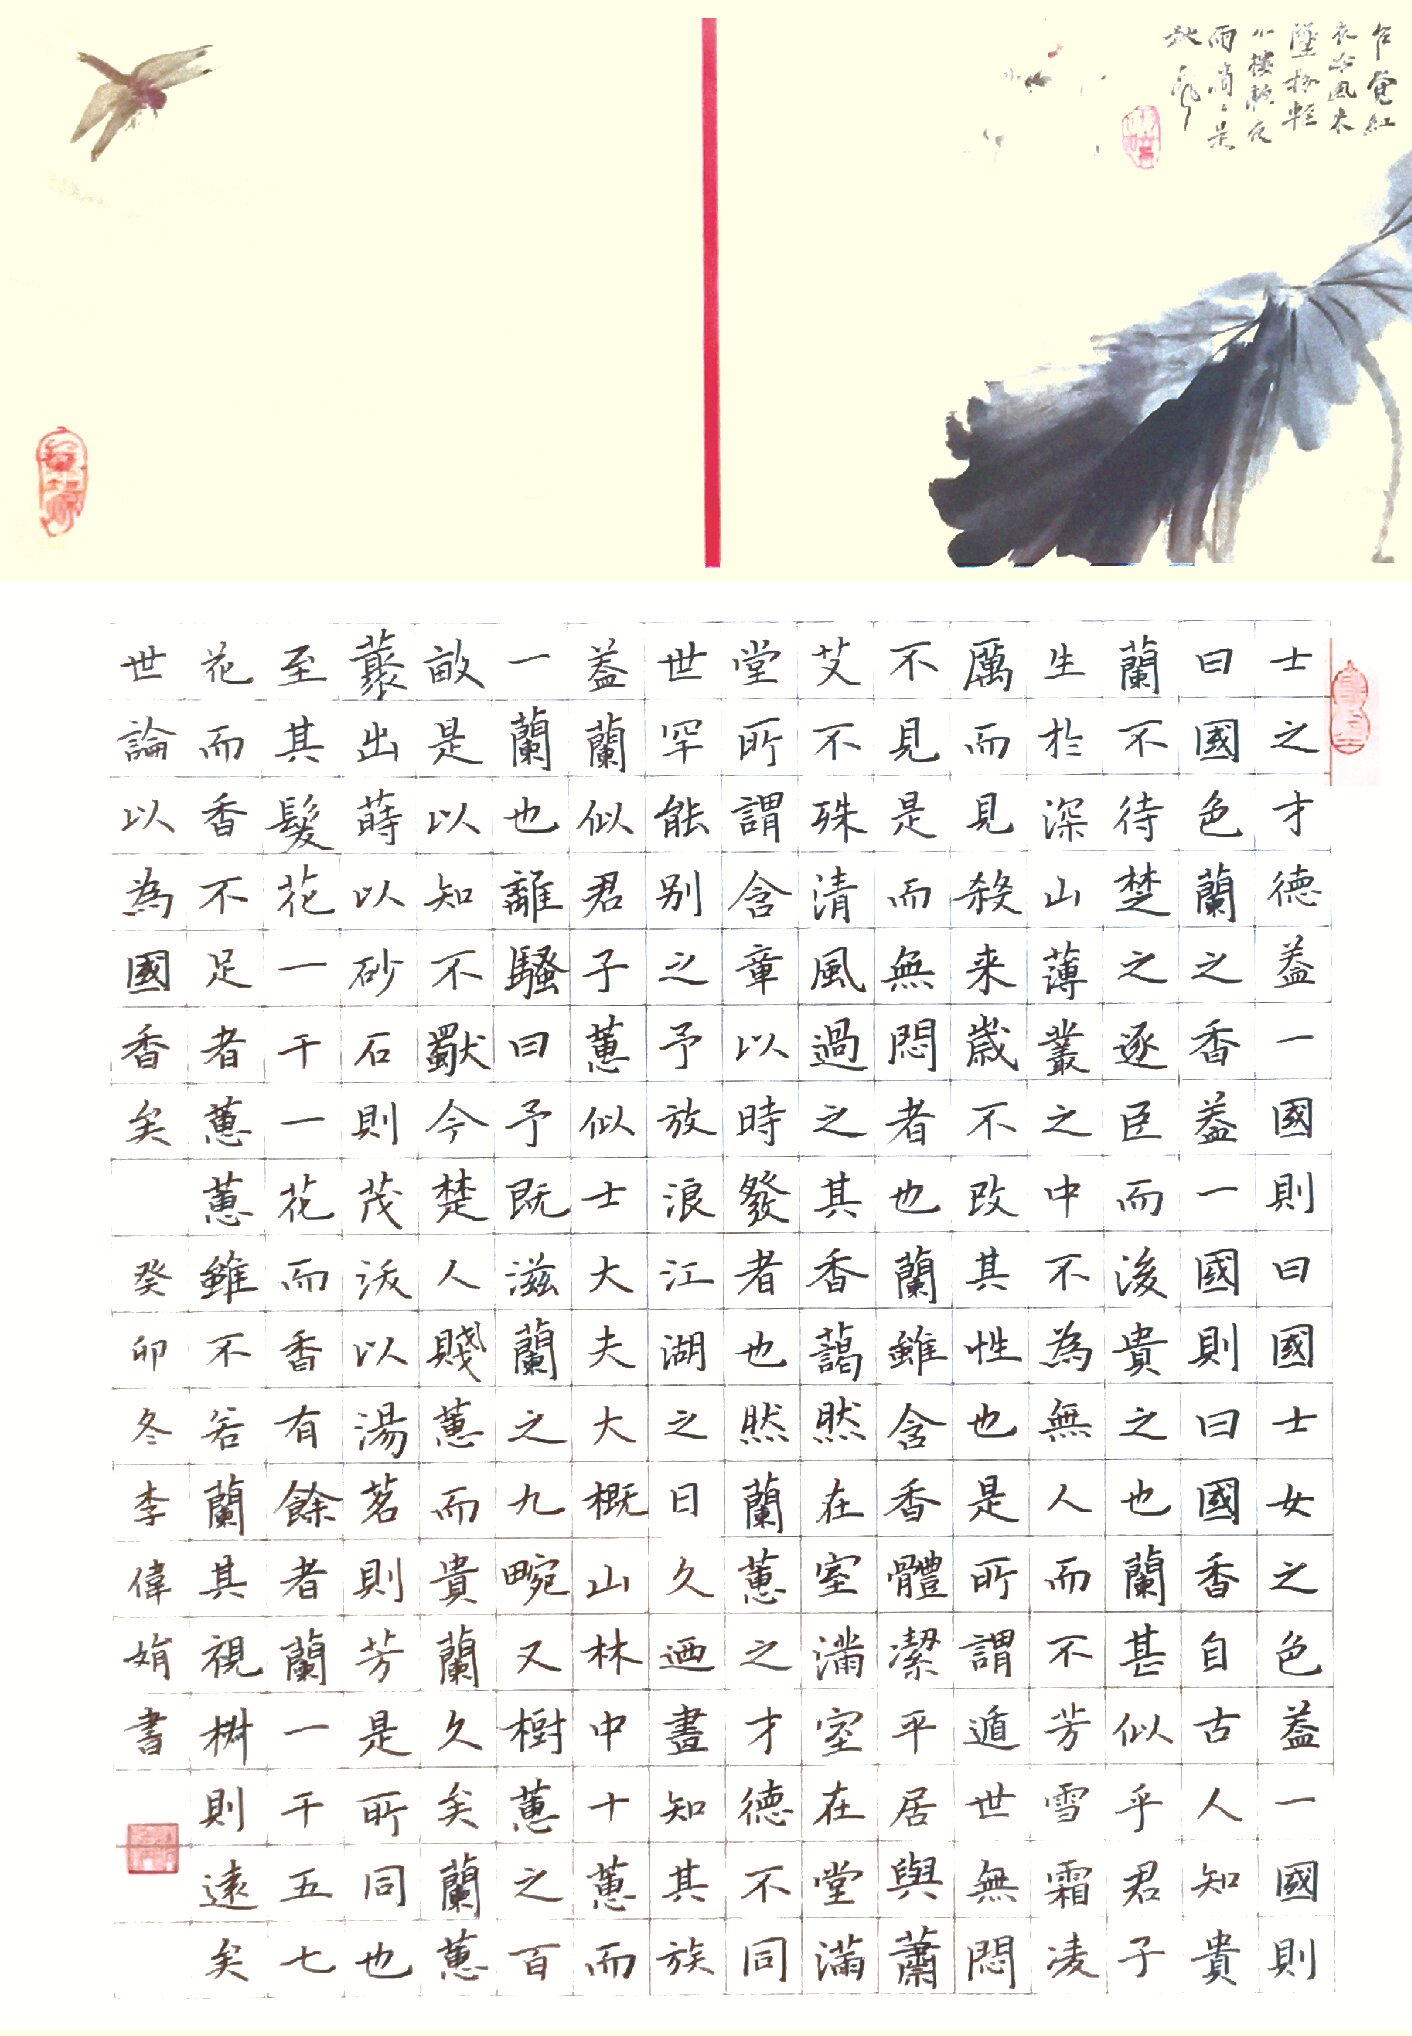 乍覺紅
衣冷風
墜粉輕
小樓夜
雨是
秋
士之才德蓋一國則曰國士女之色蓋一國則
曰國色蘭之香蓋一國則曰國香自古人知貴
蘭不待楚之逐臣而後貴之也蘭甚似乎君子
生於深山薄叢之中不為無人而不芳雪霜凌
厲而見殺来歳不改其性也是所謂遁世無悶
不見是而無悶者也蘭雖含香體潔平居與蕭
艾不殊清風過之其香藹然在室滿室在堂滿
堂所謂含章以時發者也然蘭蕙之才德不同
世罕能别之予放浪江湖之日久迺盡知其族
蓋蘭似君子蕙似士大夫大概山林中十蕙而
一蘭也離騷曰予既滋蘭之九畹又樹蕙之百
畝是以知不獨今楚人賤蕙而貴蘭久矣蘭蕙
藂出蒔以砂石則茂沃以湯茗則芳是所同也
至其發花一干一花而香有餘者蘭一干五七
花而香不足者蕙蕙雖不若蘭其視椒則遠矣
世論以為國香矣 癸卯冬李偉娟書